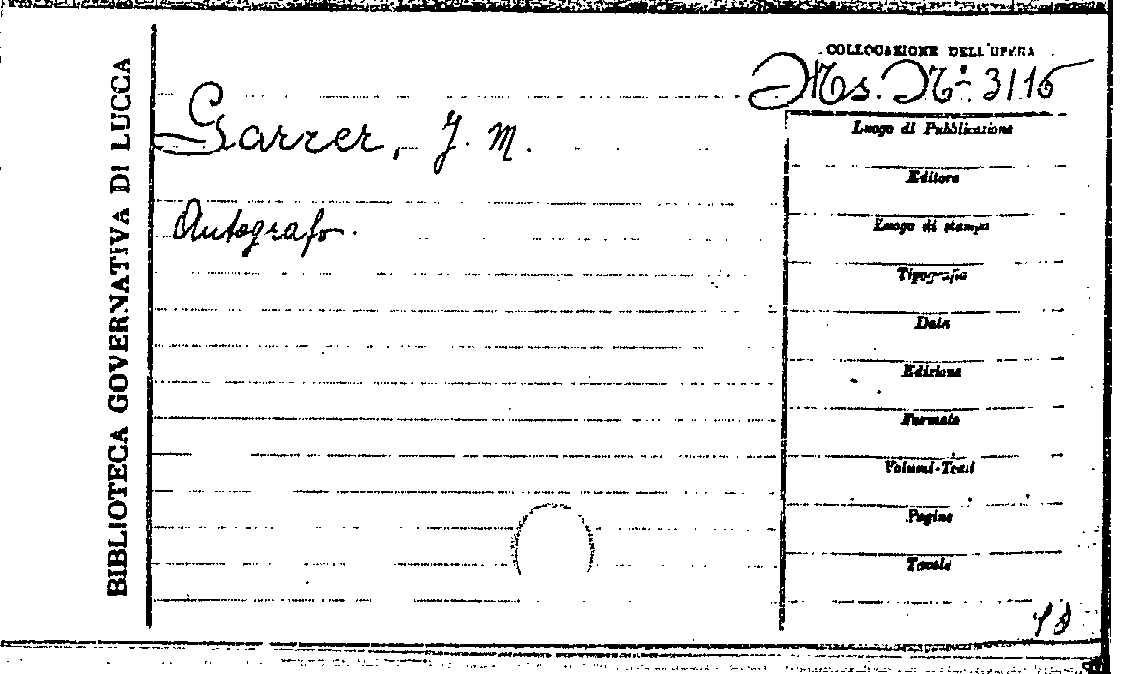 BIBLIOTECA GOVERNATIVA DI LUCCA
COLLOCAZIONE DELL'OPERA
Ms. N.º 3116
Garrer, J. M.
Autografo.
Luogo di Pubblicazione
Editore
Luogo di stampa
Tipografia
Data
Edizione
Formato
Volumi-Tomi
Pagine
Tavole